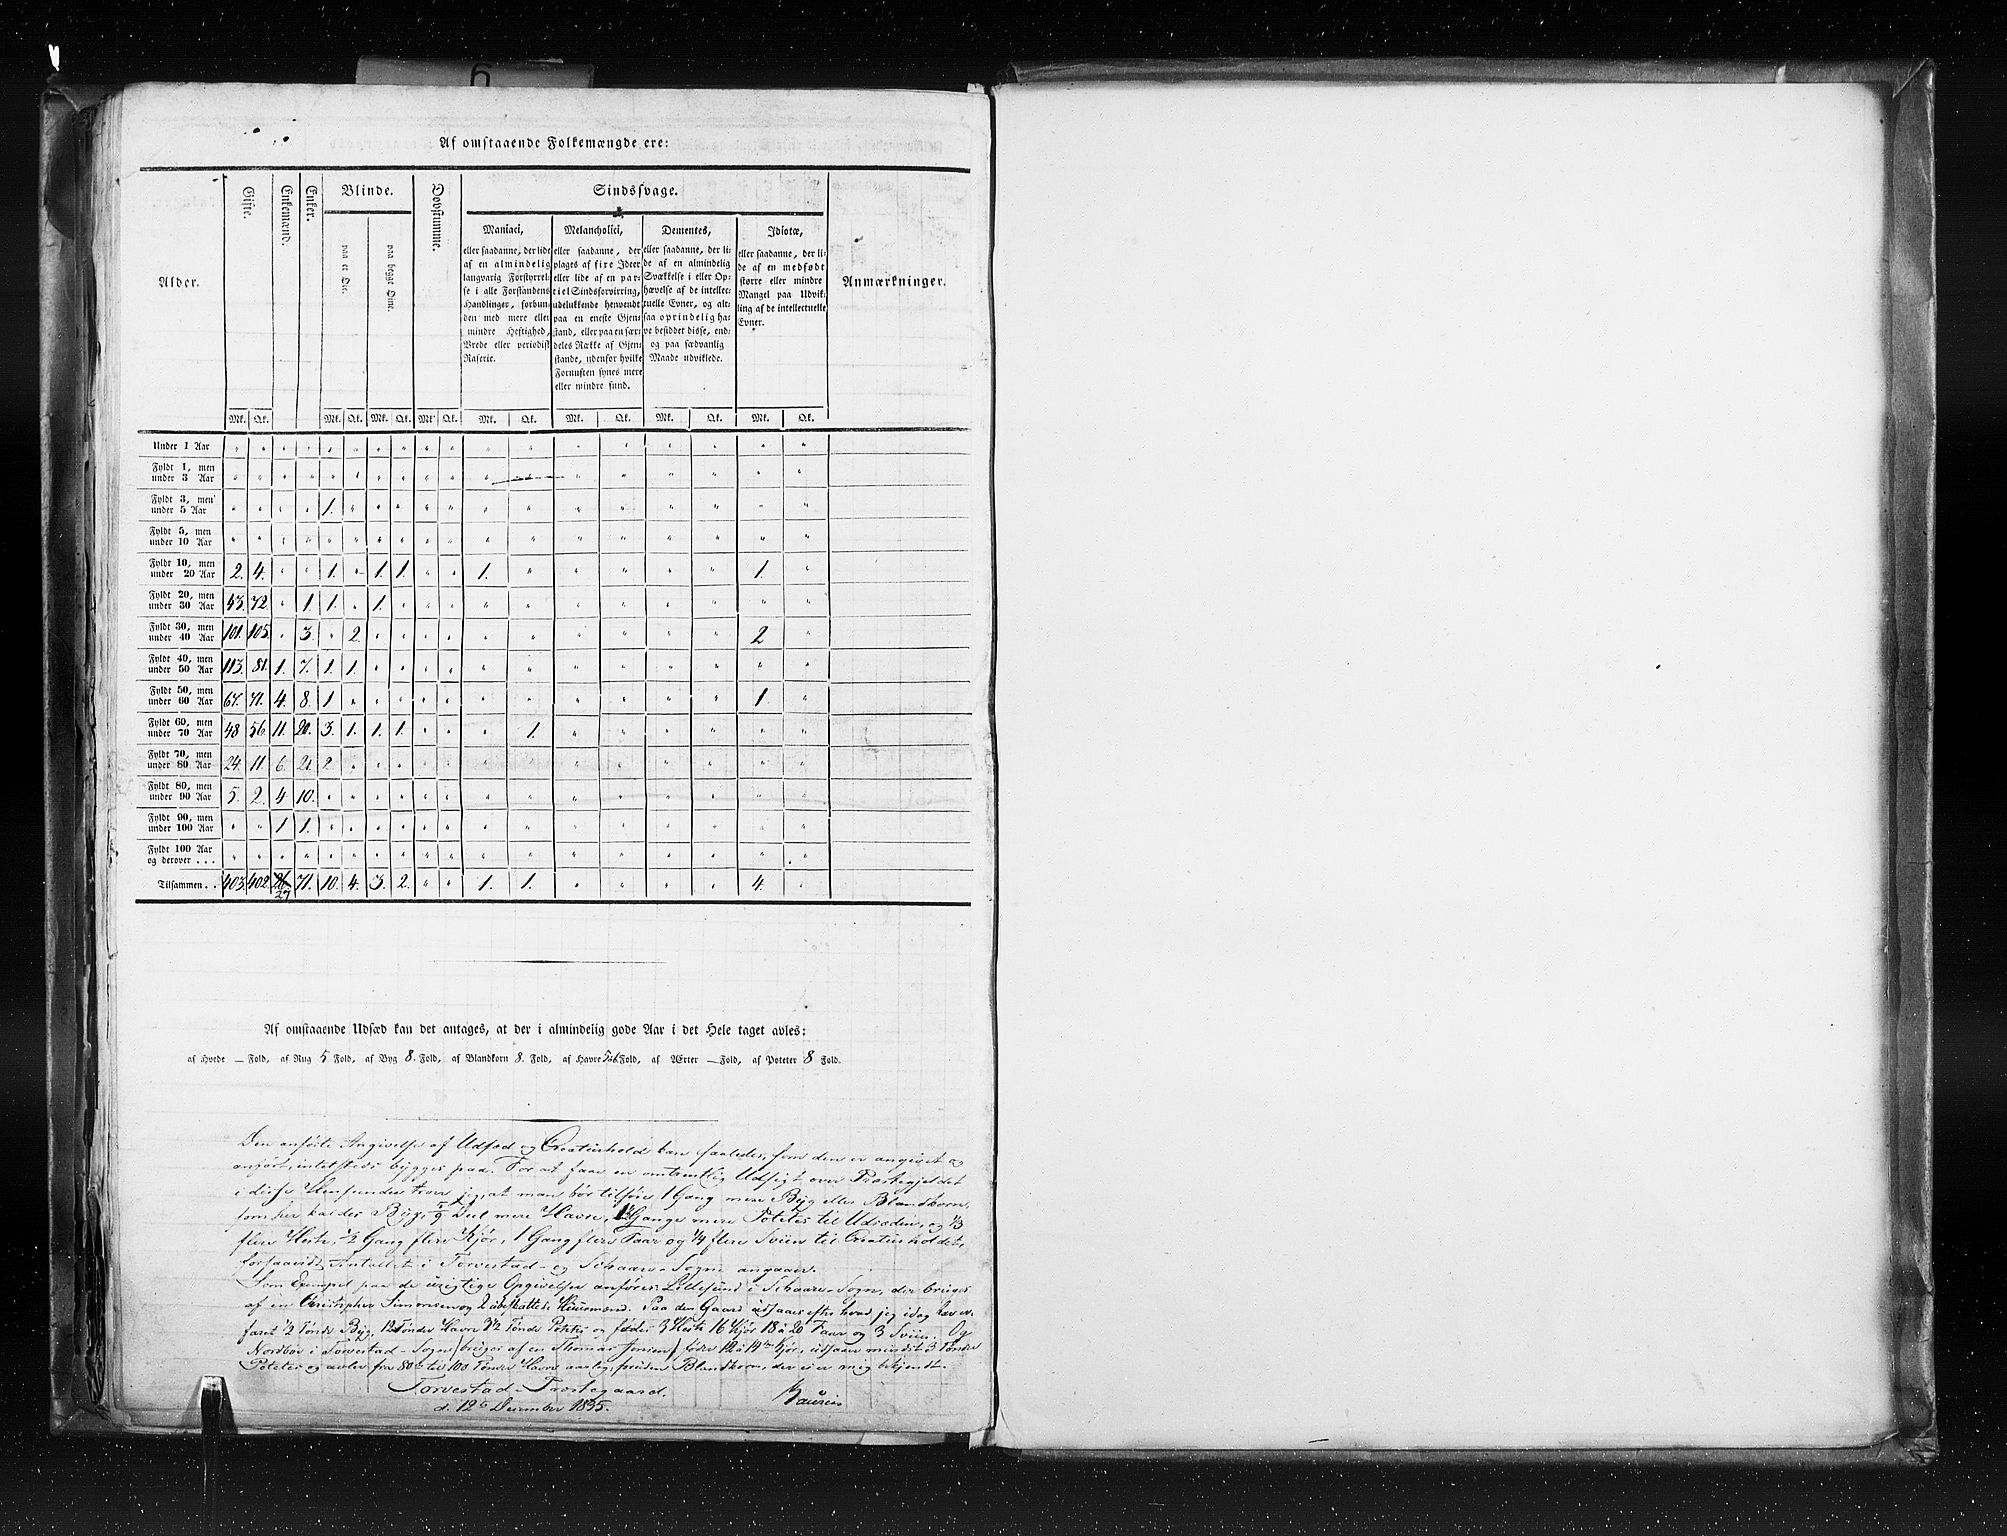 6
Af omstaaende Folkemængde ere:
Alder. Gifte. Enkemænd. Enker. Blinde. Døvstumme. Sindssvage. Anmærkninger.
paa et Øie. paa begge Øine.
Maniaci,
eller saadanne, der lide
af en almindelig
langvarig Forstyrrel-
se i alle Forstandens
Handlinger, forbun-
den med mere eller
mindre Heftighed,
Vrede eller periodisk
Raserie.
Melancholici,
eller saadanne, der
plages af fixe Ideer
eller lide af en par-
tiel Sindsforvirring,
udelukkende henvendt
paa en eneste Gjen-
stand, eller paa en sær-
deles Række af Gjen-
stande, udenfor hvilke
Fornuften synes mere
eller mindre sund.
Dementes,
eller saadanne, der li-
de af en almindelig
Svækkelse i eller Op-
hævelse af de intellec-
tuelle Evner, og alt-
saa oprindelig ha-
ve besiddet disse, end-
og paa sædvanlig
Maade udviklede.
Idiotæ,
eller saadanne, der li-
de af en medfødt
større eller mindre
Mangel paa Udvik-
ling af de intellectuelle
Evner.
Mk. Qk. Mk. Qk. Mk. Qk. Mk. Qk. Mk. Qk. Mk. Qk. Mk. Qk. Mk. Qk.
Under 1 Aar " " " " " " " " " " " " " " " " " "
Fyldt 1, men under 3 Aar " " " " " " " " " " " " " " " "
Fyldt 3, men under 5 Aar " " " " 1. " " " " " " " " " " " " "
Fyldt 5, men under 10 Aar " " " " " " " " " " " " " " " " " "
Fyldt 10, men under 20 Aar 2. 4. " " 1. " 1. 1. " " 1. " " " " " 1. "
Fyldt 20, men under 30 Aar 43. 72. " 1 1. " 1. " " " " " " " " " " "
Fyldt 30, men under 40 Aar 101. 105. " 3. " 2. " " " " " " " " " " 2 "
Fyldt 40, men under 50 Aar 113. 81. 1. 7. 1. 1. " " " " " " " " " " " "
Fyldt 50, men under 60 Aar 67. 71. 4. 8. 1 " " " " " " " " " " " 1 "
Fyldt 60, men under 70 Aar 48 56. 11. 20. 3. 1. 1. 1. " " " 1. " " " " " "
Fyldt 70, men under 80 Aar 24. 11. 6. 21. 2 " " " " " " " " " " " " "
Fyldt 80, men under 90 Aar 5. 2. 4 10. " " " " " " " " " " " " " "
Fyldt 90, men under 100 Aar " " 1 1. " " " " " " " " " " " " " "
Fyldt 100 Aar og derover . . . " " " " " " " " " " " " " " " " " "
Tilsammen . . 403. 402. 26 71. 10. 4. 3. 2. " " 1. 1. " " " " 4. "
27
Af omstaaende Udsæd kan det antages, at der i almindelig gode Aar i det Hele taget avles:
af Hvede — Fold, af Rug 5 Fold, af Byg 8. Fold, af Blandkorn 8. Fold, af Havre 5 à 6 Fold, af Ærter — Fold, af Poteter 8 Fold.
Den anførte Angivelse af Udsæd og Creaturhold kan saaledes, som den er angivet og
anført, intetsteds bygges paa. For at faae en omtrentlig Udsigt over Præstegjeldet
i disse Henseender troer jeg, at man bør tilføie 1 Gang mere Byg eller Blandkorn,
som her kaldes Byg, 5/9 Deel mere Havre, Gange mere Poteter til Udsæden, og 1/3
flere Heste, 1/2 Gang flere Kjør, 1 Gang flere Faar og 1/4 flere Sviin til Creaturholdet,
forsaavidt Antallet i Torvestad- og Schaare-Sogne angaaer.
Som Exempel paa de urigtige Opgivelser anføres: Lillesund i Schaare-Sogn, der bruges
af en Christopher Simonsen og 2 ubeskattede Huusmænd. Paa den Gaard udsaaes efter hvad jeg idag har er-
faret 1/2 Tønde Byg, 12 Tønder Havre 3 1/2 Tønde Poteter og fødes 3 Heste 16 Kjør 18 à 20 Faar og 3 Sviin. Og
Nordbø i Torvestad-Sogn (bruges af en Thomas Jensen) føder 12 à 14 Kjør, udsaaer mindst 3 Tønder
Poteter og avler fra 80 til 100 Tønder Havre aarlig, foruden Blandkorn, der ei er mig bekjendt.
Torvestad-Præstegaard.
d. 12 December 1835.